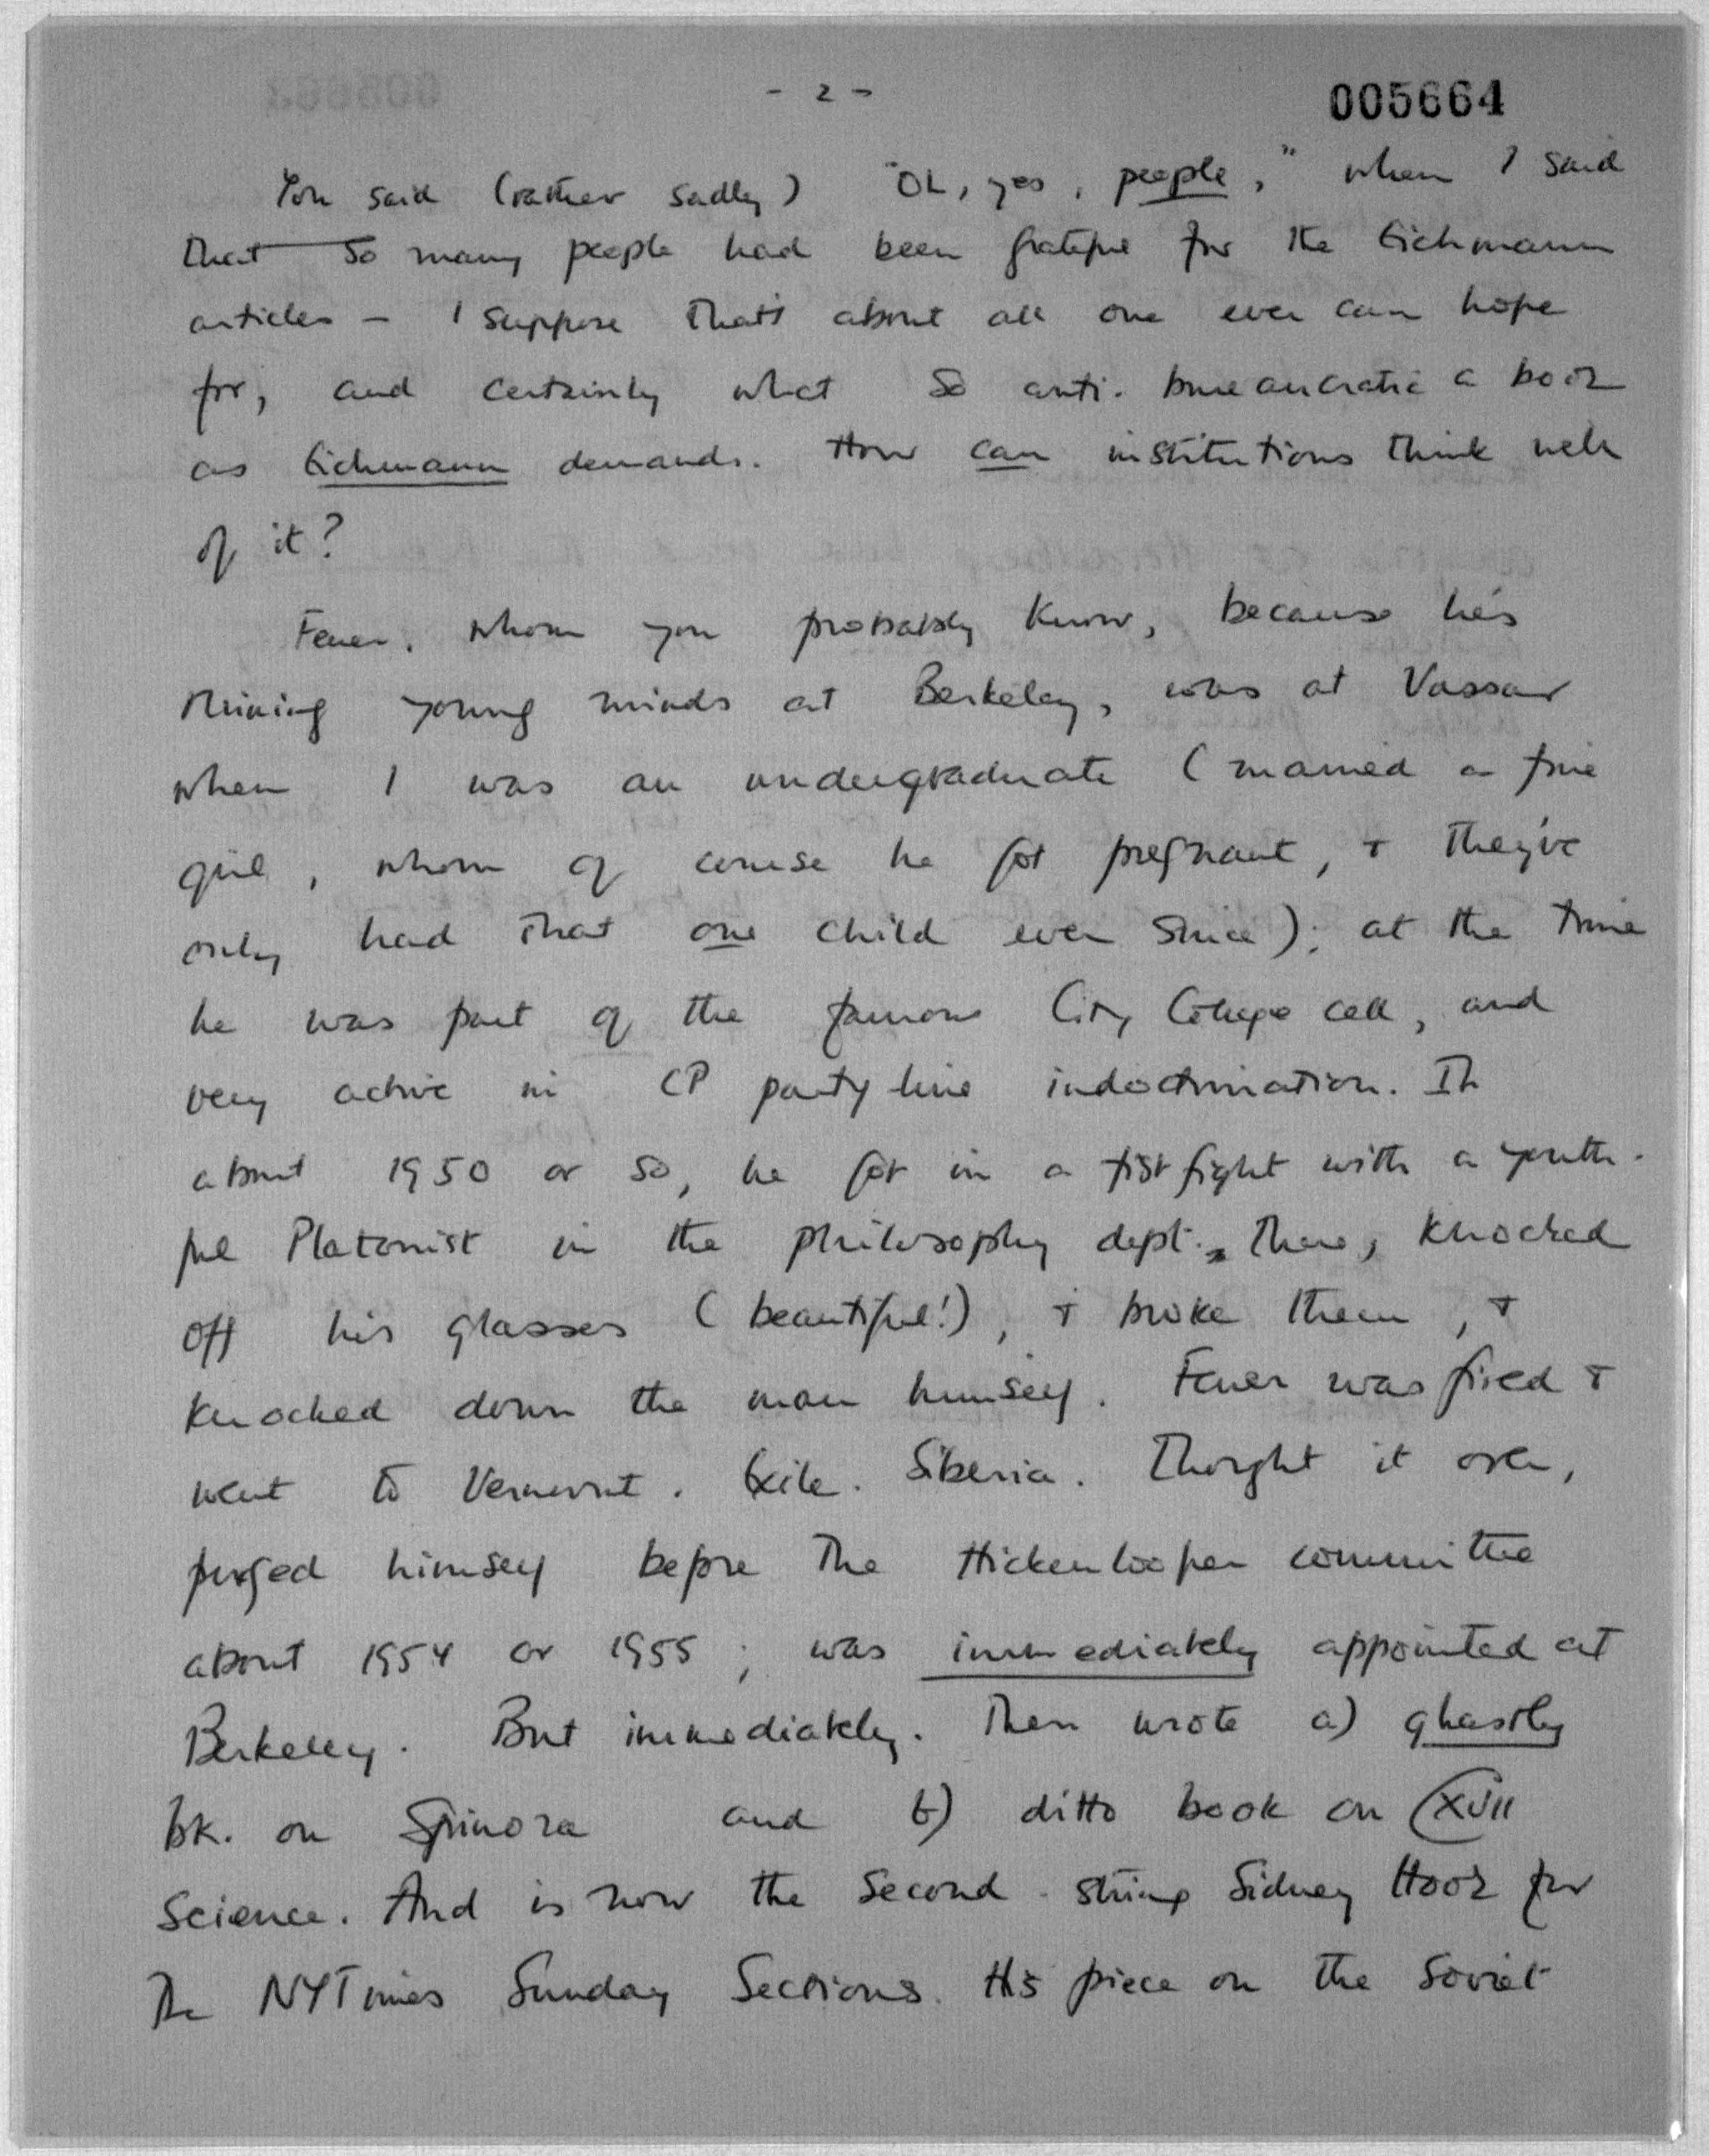 - 2 -
005664
You said (rather sadly) "Oh, yes, people," when I said
that so many people had been grateful for the Eichmann
articles - I suppose that's about all one ever can hope
for, and certainly what so anti-bureaucratic a book
as Eichmann demands. How can institutions think well
of it?
Feuer, whom you probably know, because he's
ruining young minds at Berkeley, was at Vassar
when I was an undergraduate (married a fine
girl, whom of course he got pregnant, + they've
only had that one child ever since); at the time
he was part of the famous City College cell, and
very active in CP party line indoctrination. In
about 1950 or so, he got in a fist fight with a youth-
ful Platonist in the philosophy dept. there, knocked
off his glasses (beautiful!), + broke them, +
knocked down the man himself. Feuer was fired +
went to Vermont. Exile. Siberia. Thought it over,
purged himself before the Hickenlooper committee
about 1954 or 1955; was immediately appointed at
Berkeley. But immediately. Then wrote a) ghastly
bk. on Spinoza and b) ditto book on XVII
Science. And is now the second-string Sidney Hook for
The NYTimes Sunday Sections. His piece on the Soviet